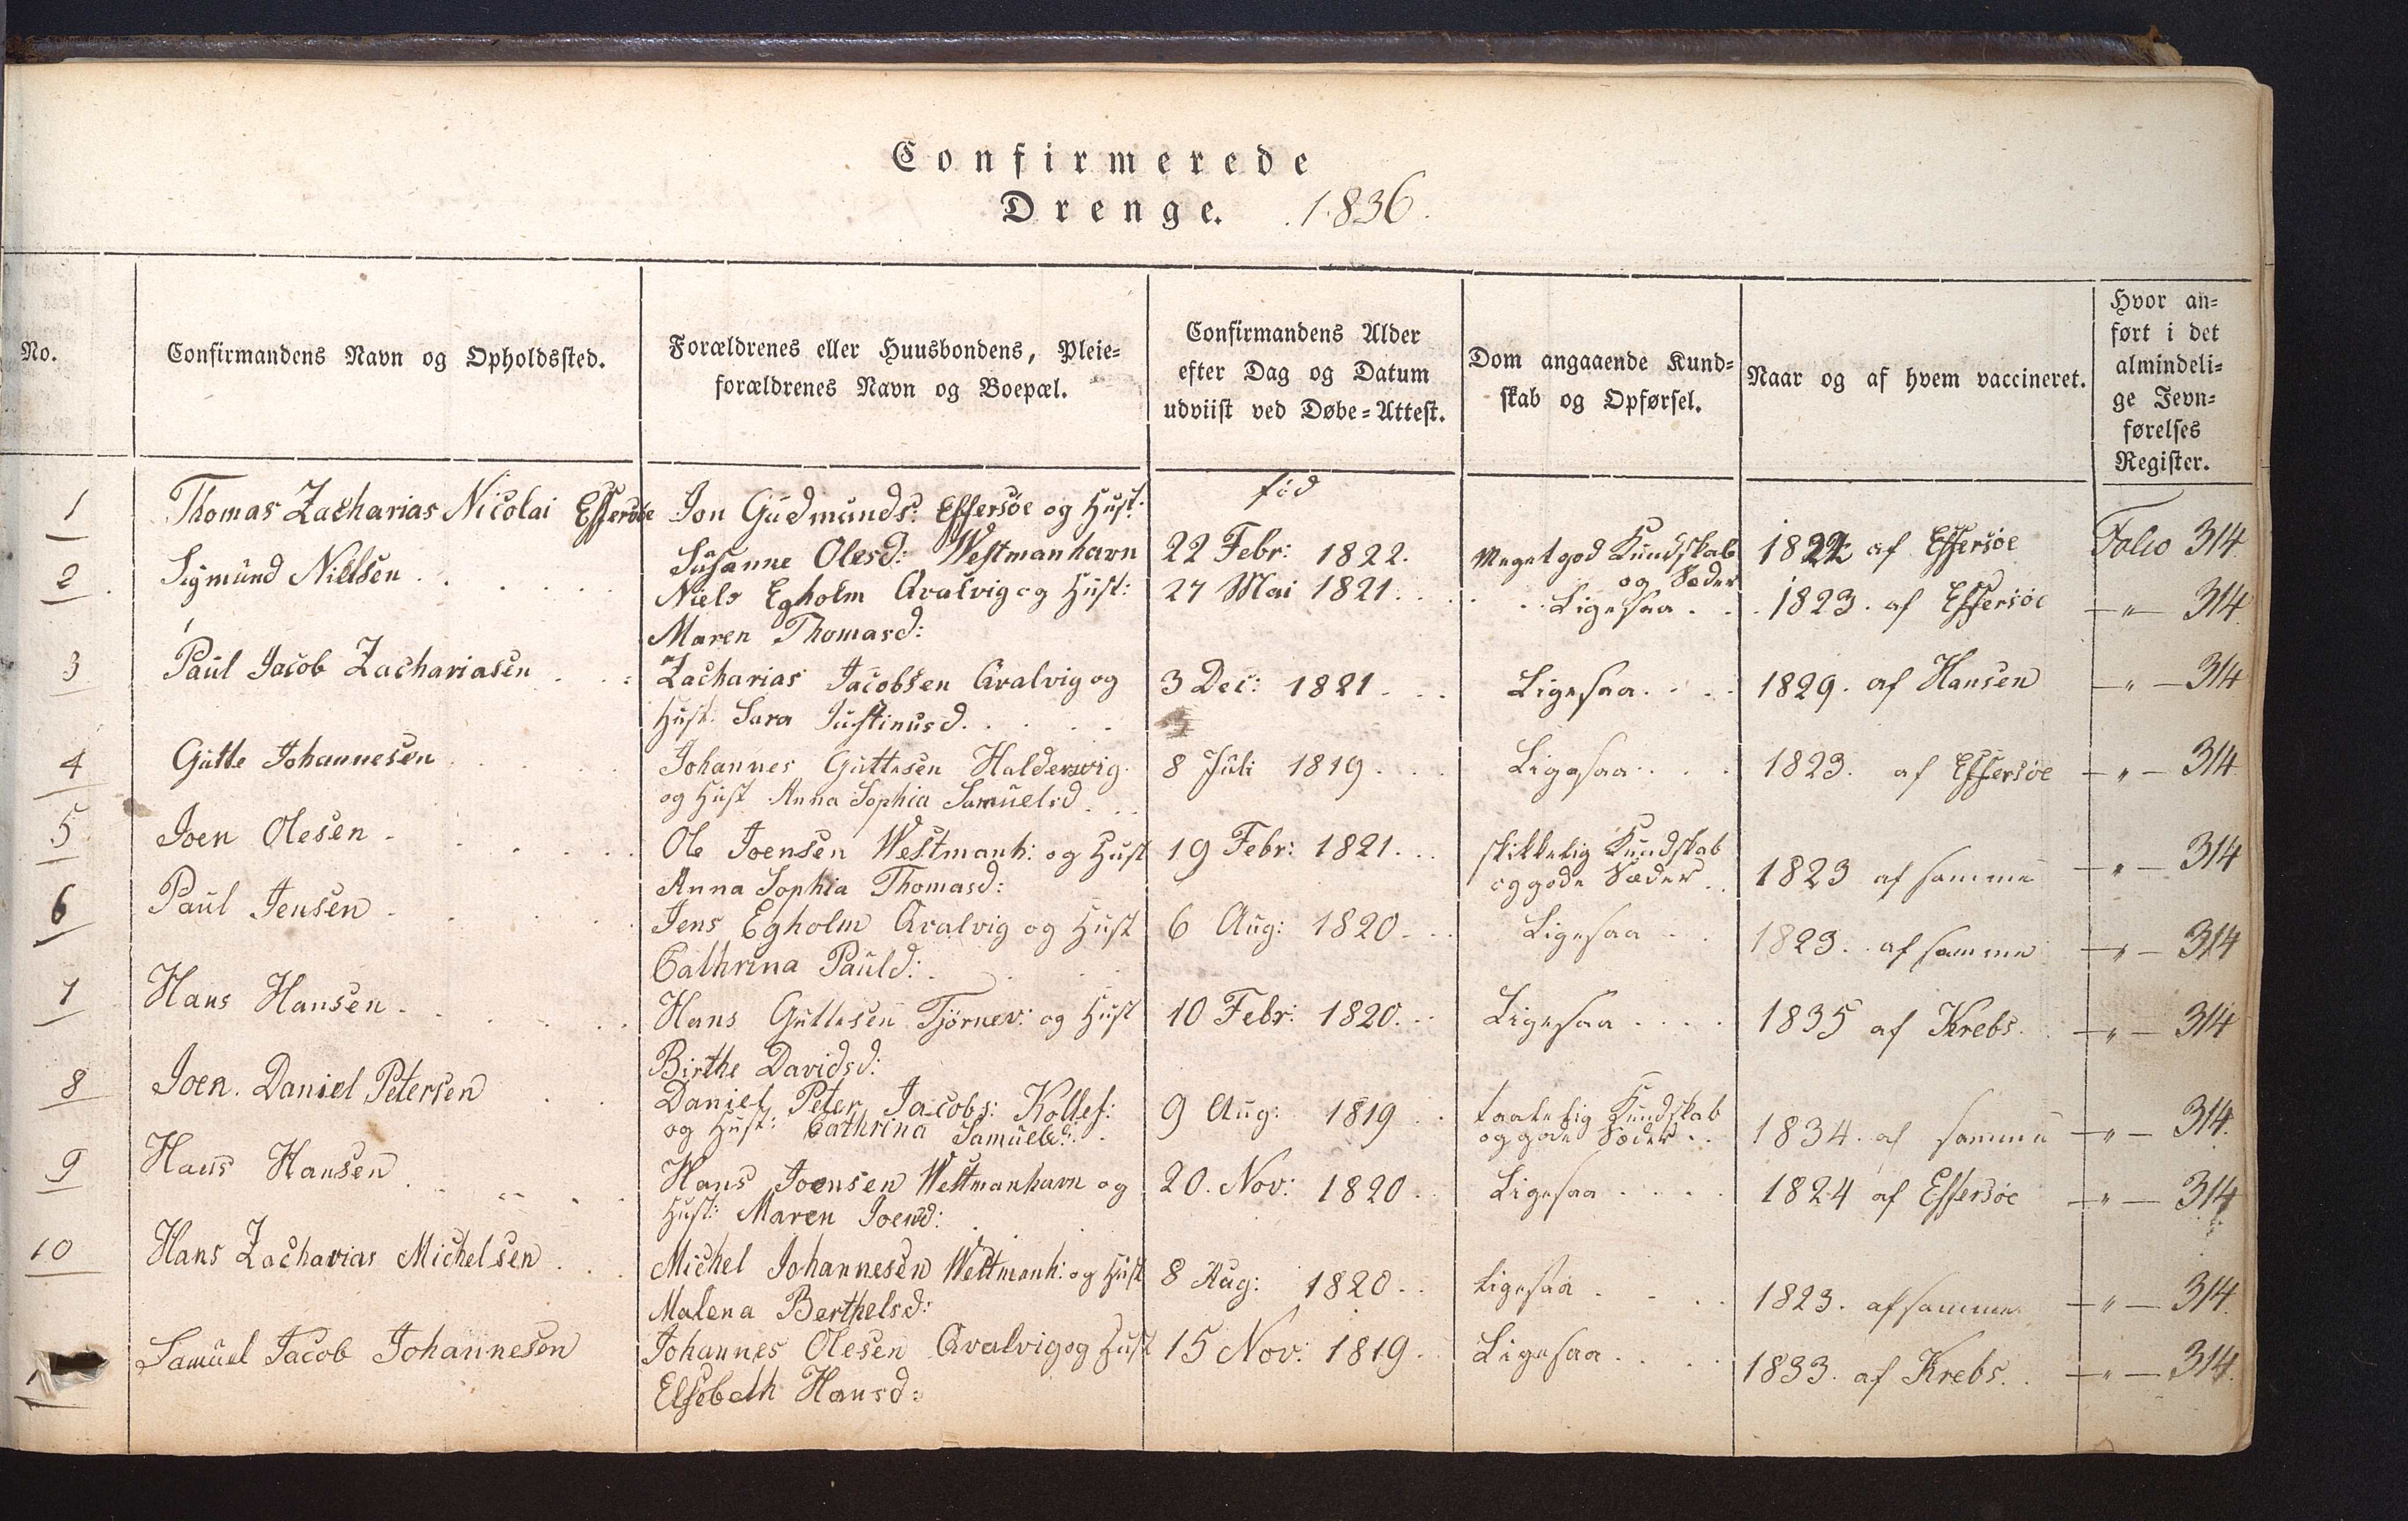 Confirmerede
Drenge. 1836.
No.
Confirmandens Navn og Opholdssted.
Forældrenes eller Huusbondens, Pleie=
forældrenes Navn og Boepæl.
Confirmandens Alder
efter Dag og Datum
udviist ved Døbe=Attest.
Dom angaaende Kund=
skab og Opførsel.
Naar og af hvem vaccineret.
Hvor an=
ført i det
almindeli=
ge Jevn=
førelses
Register.
1 Thomas Zacharias Nicolai Effersöe
Jon Gudmunds: Effersöe og Hust:
Susanne Olesd: Westmanhavn
fód
22 Febr: 1822.
Meget god Kundskab
og Sæder
1822 af Effersöe
Folio 314
2 Sigmund Nielsen
Niels Egholm Qvalvig og Hust:
Maren Thomasd:
27 Mai 1821
Ligesaa
1823. af Effersöe
—"— 314
3 Paul Jacob Zachariasen
Zacharias Jacobsen Qvalvig og
Hust: Sara Justinusd.
3 Dec: 1821
Ligesaa
1829. af Hansen
—"— 314
4 Gutte Johannesen
Johannes Guttesen Halderswig
og Hust Anna Sophia Samuelsd
8 Juli 1819
Ligesaa
1823. af Effersöe
—"— 314
5 Joen Olesen
Ole Joensen Westmanh: og Hust
Anna Sophia Thomasd:
19 Febr: 1821
skikkelig Kundskab
og gode Sæder
1823 af samme
—"— 314
6 Paul Jensen
Jens Egholm Qvalvig og Hust
Cathrina Pauld:
6 Aug: 1820
Ligesaa
1823. af samme
—"— 314
7 Hans Hansen
Hans Guttesen Tjörnev: og Hust
Birthe Davidsd:
10 Febr: 1820
Ligesaa
1835 af Krebs.
—"— 314
8 Joen. Daniel Petersen
Daniel Peter Jacobs: Kollef:
og Hust: Cathrina Samuelsd:
9 Aug: 1819
taalelig Kundskab
og gode Sæder
1834. af samme
—"— 314.
9 Hans Hansen
Hans Joensen Westmanhavn og
Hust: Maren Joensd:
20. Nov: 1820
Ligesaa
1824 af Effersöe
—"— 314
10 Hans Zacharias Michelsen
Michel Johannesen Westmanh: og Hust
Malena Barthelsd:
8 Aug: 1820
Ligesaa
1823. af samme
—"— 314.
Samuel Jacob Johannesen
Johannes Olesen Qvalvig og Hust
Elsebeth Hansd:
15 Nov: 1819
Ligesaa
1833. af Krebs.
—"— 314.